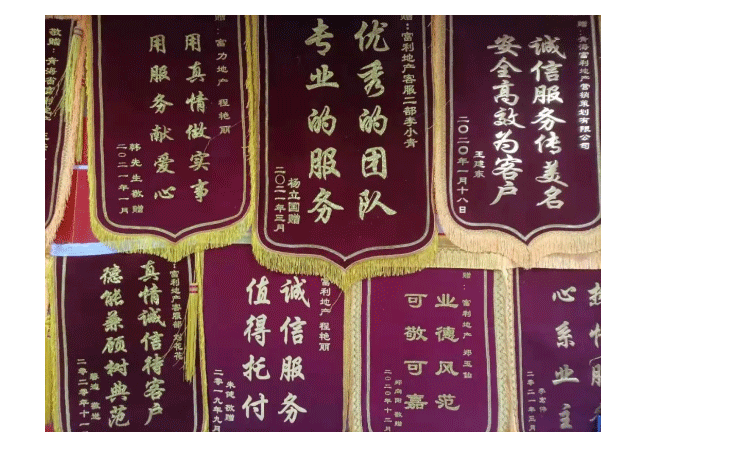 敬赠：青海省富利地产
赠：富力地产 程艳丽
用真情做实事
用服务献爱心
韩先生 敬赠
二〇二一年一月
赠：富利地产客服二部李小青
优秀的团队
专业的服务
杨立国赠
二〇二一年三月
赠：青海富利地产营销策划有限公司
诚信服务传美名
安全高效为客户
王建东
二〇二〇年一月十八日
富利地产客服部 刘花花
真情诚信待客户
德能兼顾树典范
敬赠
二零二零年十一
富利地产 程艳丽
诚信服务
值得托付
朱健 敬赠
二零一九年九月
赠：富利地产 郑玉仙
业德风范
可敬可嘉
郑向阳 敬赠
二〇二〇年十二月
心系业主
二〇二一年五月